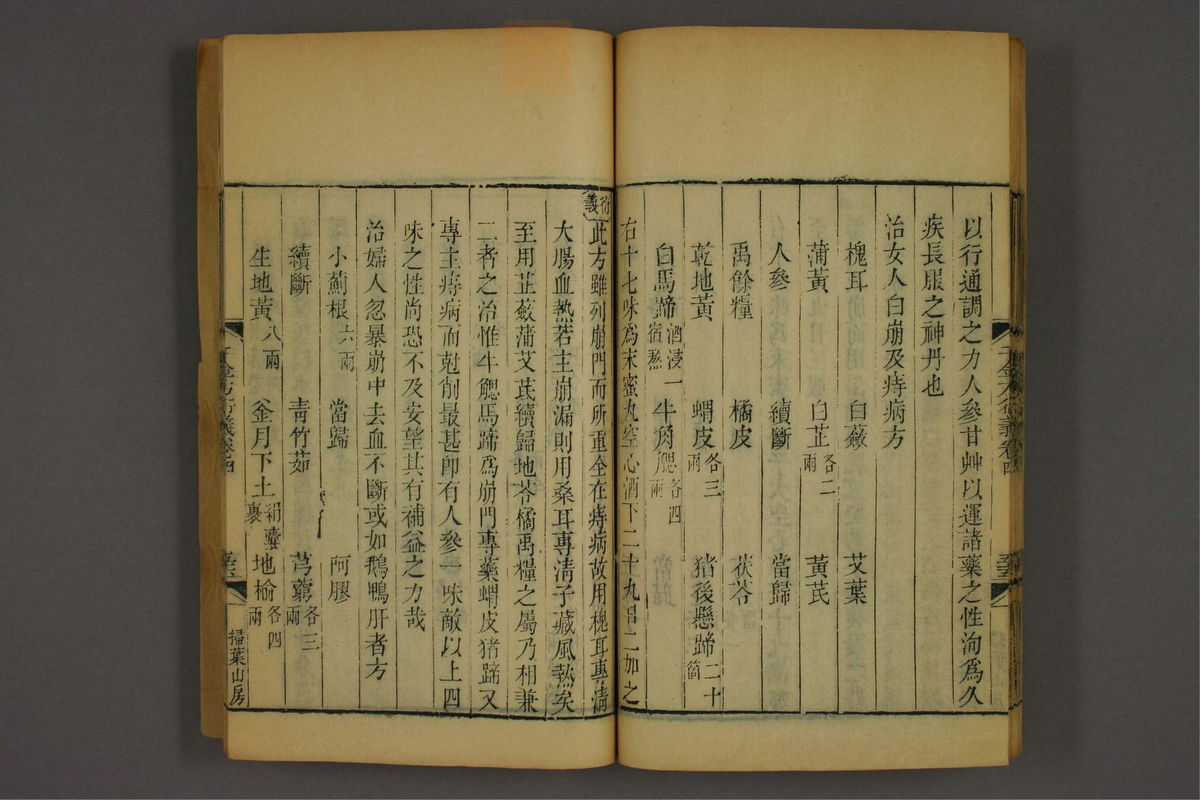 以行通調之力人參甘艸以運諸藥之性洵爲久
疾長服之神丹也
治女人白崩及痔病方
槐耳 白蘞 艾葉
蒲黃 白芷各二兩 黃芪
人參 續斷 當歸
禹餘糧 橘皮 茯苓
乾地黃 蝟皮各三兩 猪後懸蹄二十箇
白馬蹄酒浸一宿熬 牛角䚡各四兩
右十七味爲末蜜丸空心酒下二十丸日二加之
衍義
此方雖列崩門而所重全在痔病故用槐耳專淸
大腸血熱若主崩漏則用桑耳專淸子藏風熱矣
至用芷蘞蒲艾芪續歸地苓橘禹糧之屬乃相兼
二者之治惟牛䚡馬蹄爲崩門專藥蝟皮猪蹄又
專主痔病而尅削最甚卽有人參一味敵以上四
味之性尚恐不及安望其有補益之力哉
治婦人忽暴崩中去血不斷或如鵝鴨肝者方
小薊根六兩 當歸 阿膠
續斷 靑竹茹 芎藭各三兩
生地黃八兩 釜月下土絹囊裹 地榆各四兩
掃葉山房
千金方衍義卷四